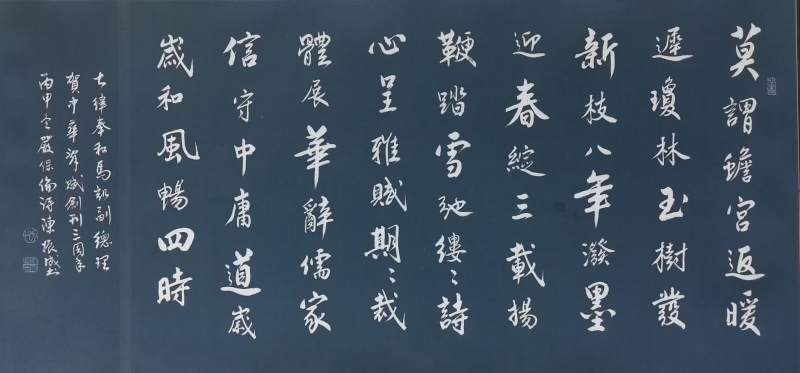 莫謂蟾宮返暖
遲瓊林玉樹發
新枝八年潑墨
迎春綻三載揚
鞭踏雪馳縷〻詩
心呈雅賦期〻裁
體展華辭儒家
信守中庸道嵗
嵗和風暢四時
七律奉和馬凱副總理
賀中華辭賦創刊三周年
丙申冬嚴保倫詩陳振